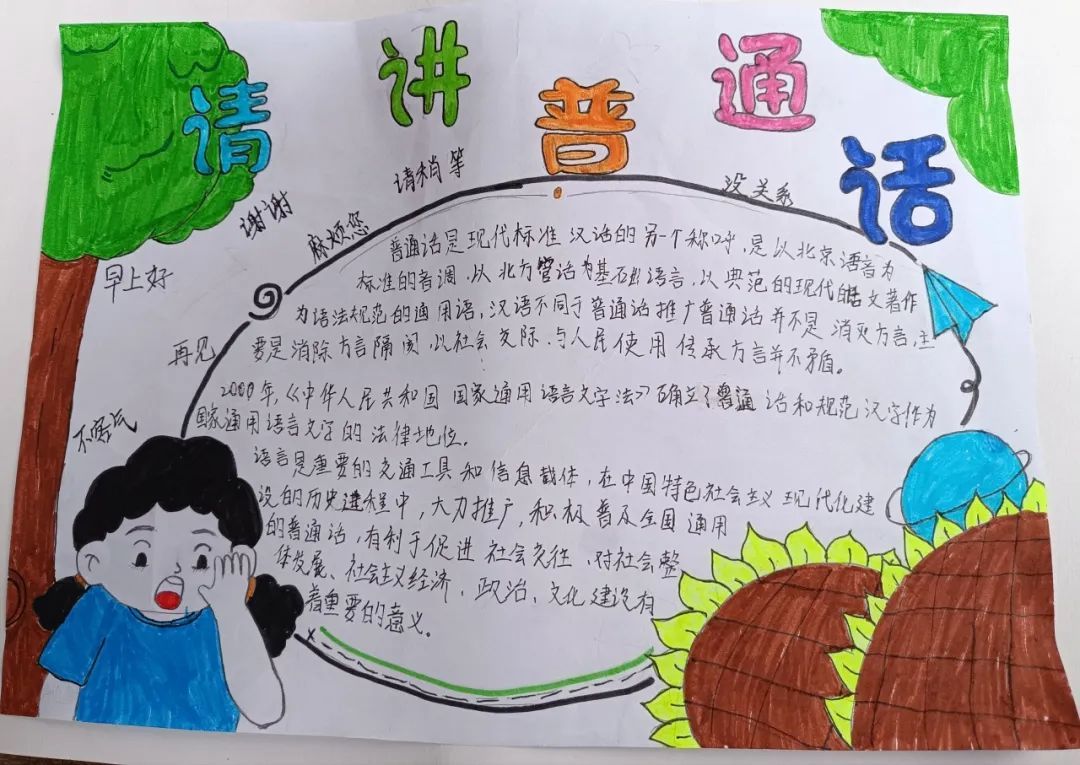 请讲普通话
请稍等
没关系
谢谢
麻烦您
早上好
再见
不客气
普通话是现代标准汉语的另一个称呼,是以北京语音为
标准的音调,以北方官话为基础语言,以典范的现代白话文著作
为语法规范的通用语,汉语不同于普通话推广普通话并不是消灭方言,主
要是消除方言隔阂,以社会交际,与人民使用传承方言并不矛盾。
2000年,《中华人民共和国国家通用语言文字法》确立了普通话和规范汉字作为
国家通用语言文字的法律地位。
语言是重要的交通工具和信息载体,在中国特色社会主义现代化建
设的历史进程中,大力推广,积极普及全国通用
的普通话,有利于促进社会交往,对社会整
体发展、社会主义经济,政治,文化建设有
着重要的意义。